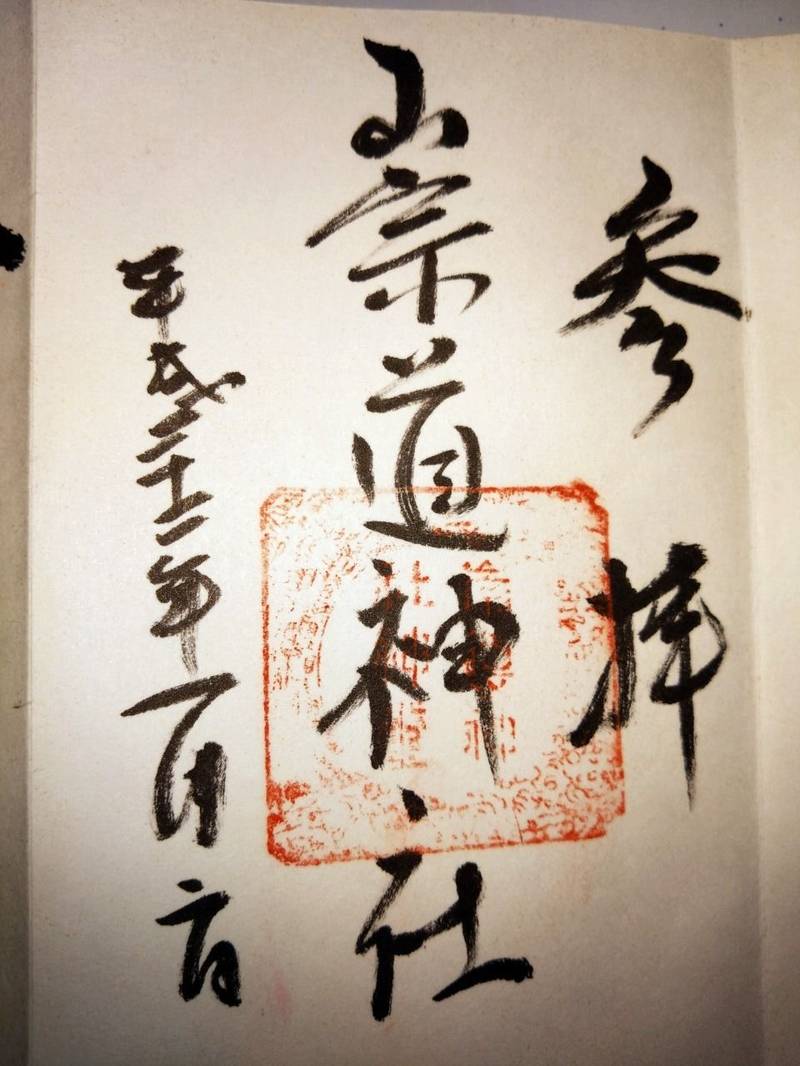 参拝
崇道神社
平成二十一年一月日